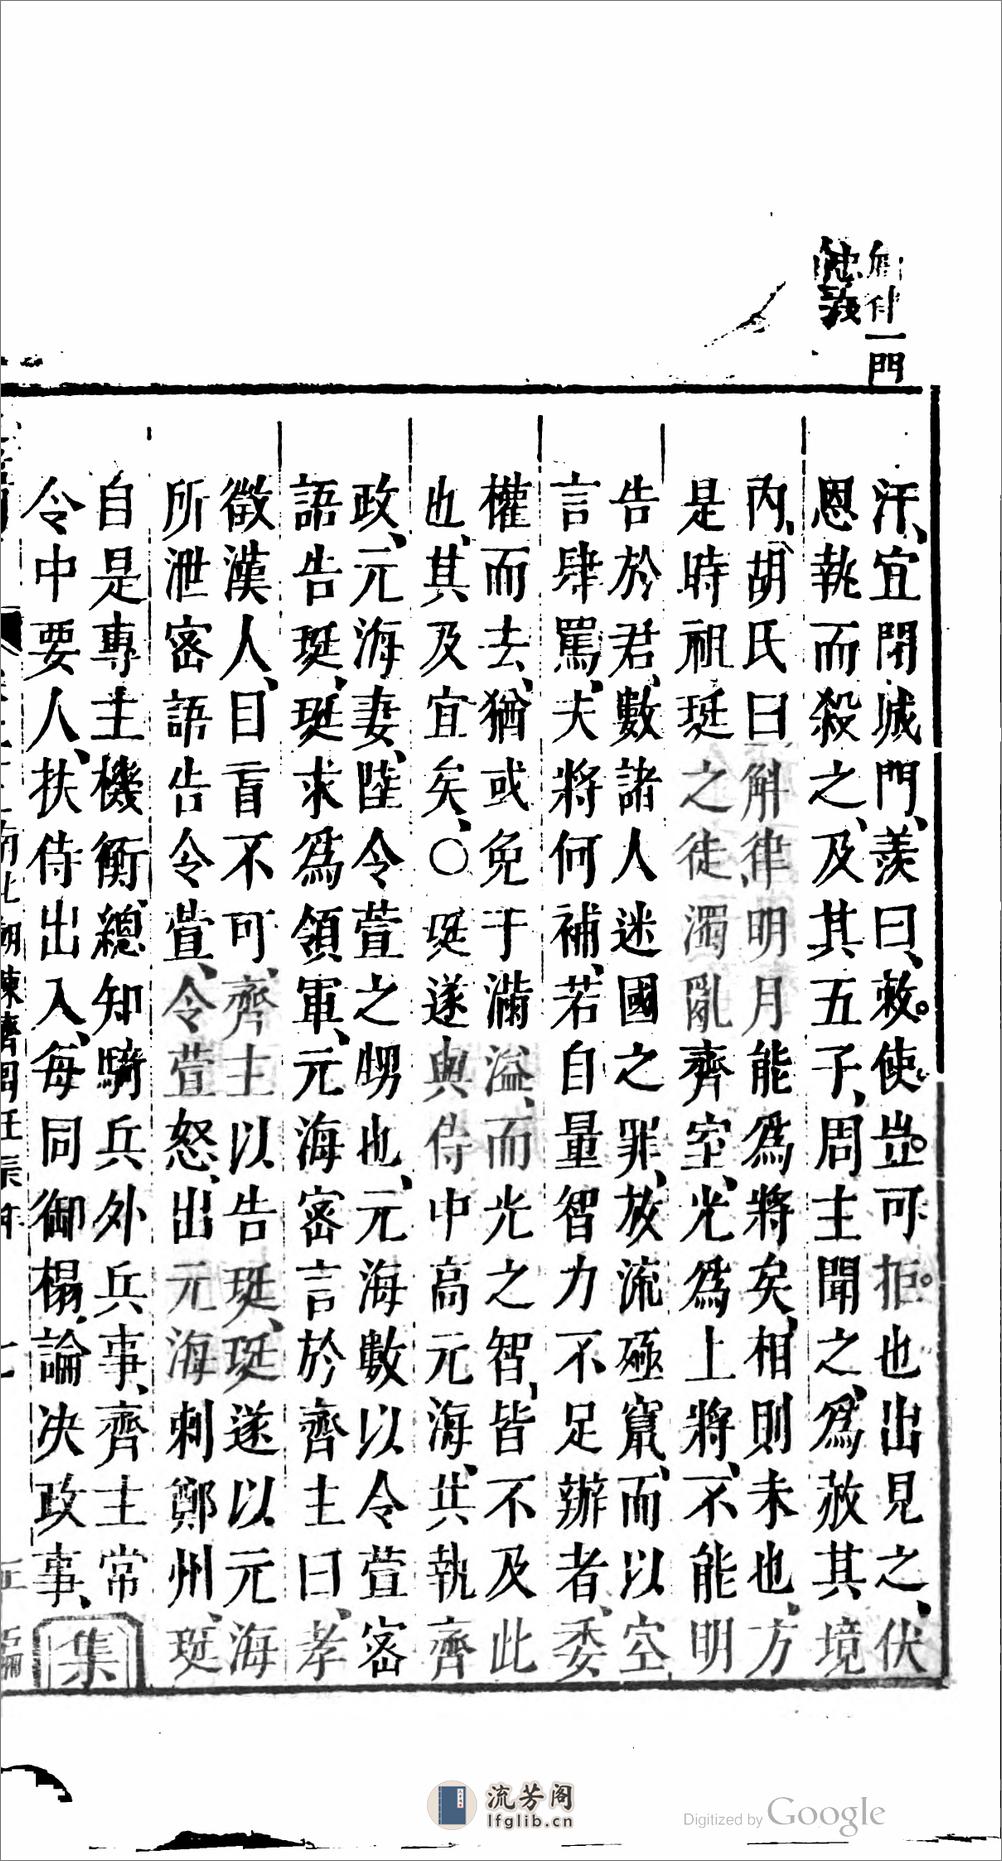 斛律一門
忠義
汗、宜閉城門、羨曰、敕使豈可拒也出見之、伏
恩執而殺之、及其五子、周主聞之、爲赦其境
內、胡氏曰斛律明月能爲將矣、相則未也、方
是時祖珽之徒濁亂齊室、光爲上將、不能明
告於君、數諸人迷國之罪、放流殛竄、而以空
言肆罵、夫將何補、若自量智力不足辦者、委
權而去、猶或免于滿溢、而光之智、皆不及此
也、其及宜矣、○珽遂與侍中高元海、共執齊
政、元海妻、陸令萱之甥也、元海數以令萱密
語告珽、珽求爲領軍、元海密言於齊主曰、孝
徵漢人、目盲不可、齊主以告珽、珽遂以元海
所泄密語告令萱、令萱怒、出元海刺鄭州、珽
自是專主機衡、總知騎兵外兵事、齊主常
令中要人、扶侍出入、每同御榻、論决政事、
集
南北朝陳齊周
流芳阁
lfglib.cn
Digitized by Google